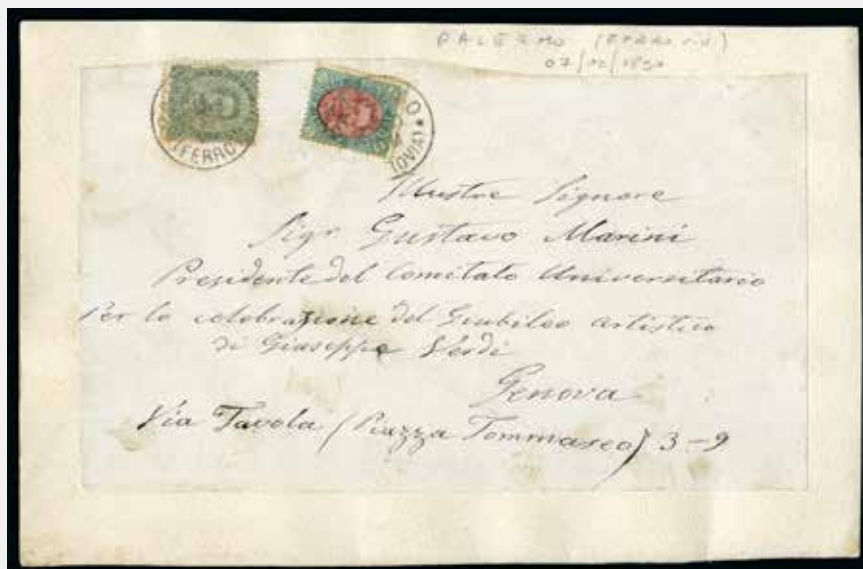 PALERMO (FERROVIA)
(FERROV
OVIA)
Illustre Signore
Sigr. Gustavo Marini
Presidente del Comitato Universitario
Per la celebrazione del Giubileo artistico
di Giuseppe Verdi
Genova
Via Tavola (Piazza Tommaseo) 3-9